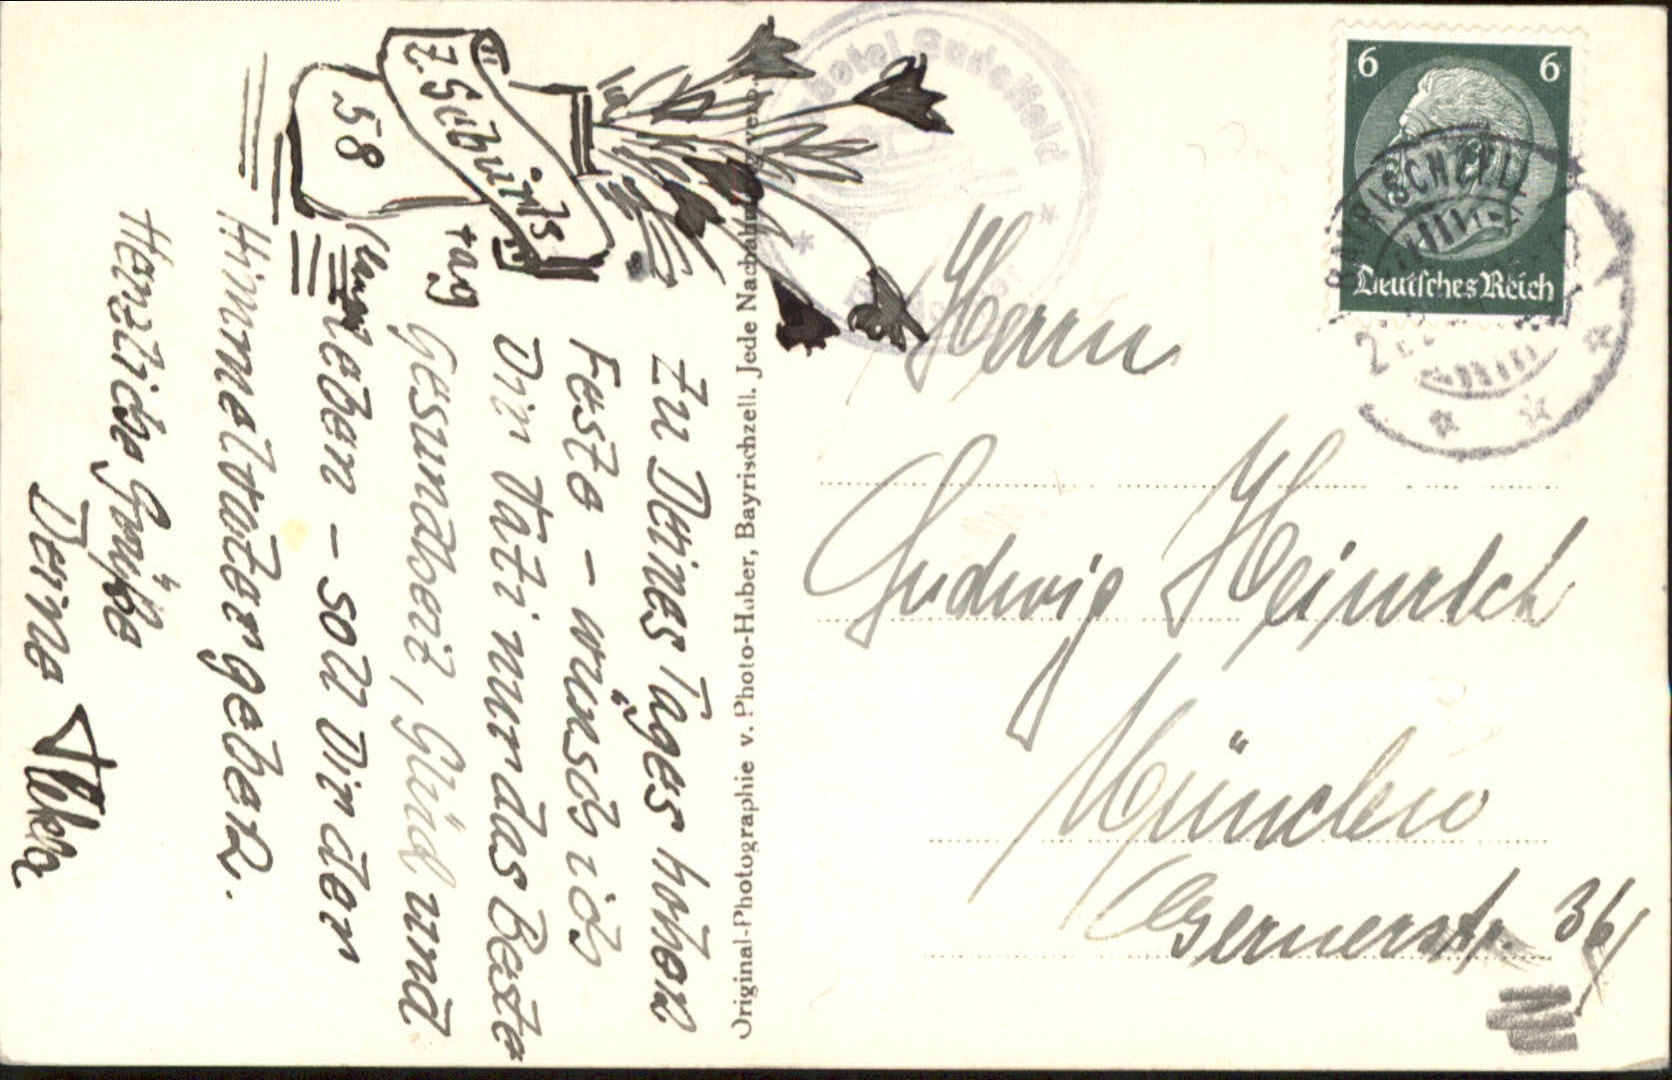 z. Geburts
tag
58
Zu Deines Tages hohen
Feste – wünsch ich
Dir Vati nur das Beste
Gesundheit, Glück und
langes
Leben – soll Dir der
Himmelvater geben.
Herzliche Grüße
Deine
Original-Photographie v. Photo-Huber, Bayrischzell. Jede Nachahmung verb.
6 6
Deutsches Reich
BAYRISCHZELL
Herrn
Ludwig Heinrich
München
Gernerstr. 36